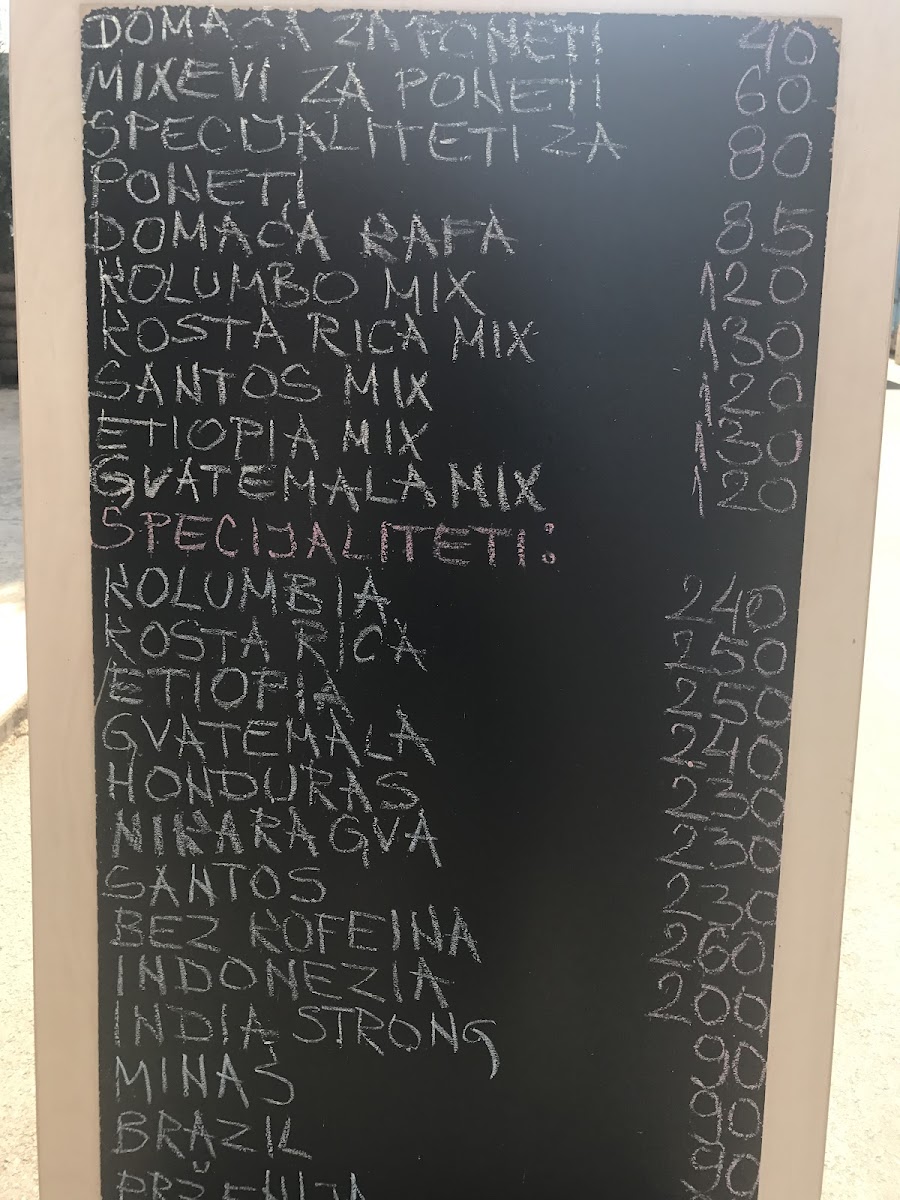 DOMAĆA ZA PONETI 40
MIXEVI ZA PONETI 60
SPECIJALITETI ZA 80
PONETI
DOMAĆA KAFA 85
KOLUMBO MIX 120
KOSTA RICA MIX 130
SANTOS MIX 120
ETIOPIA MIX 130
GVATEMALA MIX 120
SPECIJALITETI:
KOLUMBIA 240
KOSTA RICA 250
ETIOPIA 250
GVATEMALA 240
HONDURAS 230
NIKARAGVA 230
SANTOS 230
BEZ KOFEINA 260
INDONEZIA 200
INDIA STRONG 90
MINAS 90
BRAZIL 90